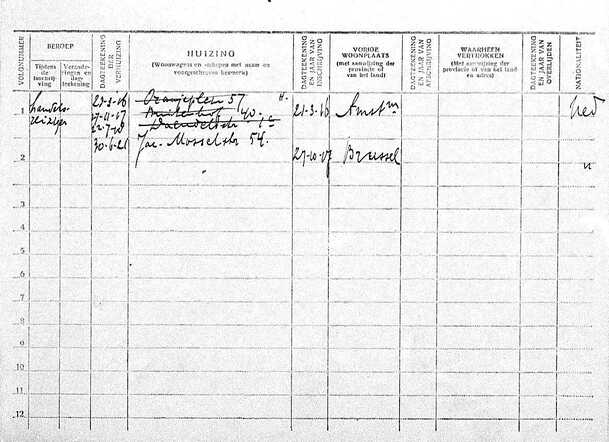 VOLGNUMMER
BEROEP
Tijdens de inschrijving
Veranderingen en dagteekening
DAGTEEKENING DER VERHUIZING
HUIZING
(Woonwagens en schepen met naam en voorgeschreven kenmerk)
DAGTEEKENING EN JAAR VAN INSCHRIJVING
VORIGE WOONPLAATS
(met aanwijzing der provincie of van het land)
DAGTEEKENING EN JAAR VAN AFSCHRIJVING
WAARHEEN VERTROKKEN
(Met aanwijzing der provincie of van het land en adres)
DAGTEEKENING EN JAAR VAN OVERLIJDEN
NATIONALITEIT
1 handels- 21-3-16 Oranjeplein 57 H. 21-3-16 Amstm Ned
reiziger 40
30-6-21 Jac. Mosselstr 54.
2 27-10-17 Brussel "
3
4
5
6
7
8
9
10
11
12